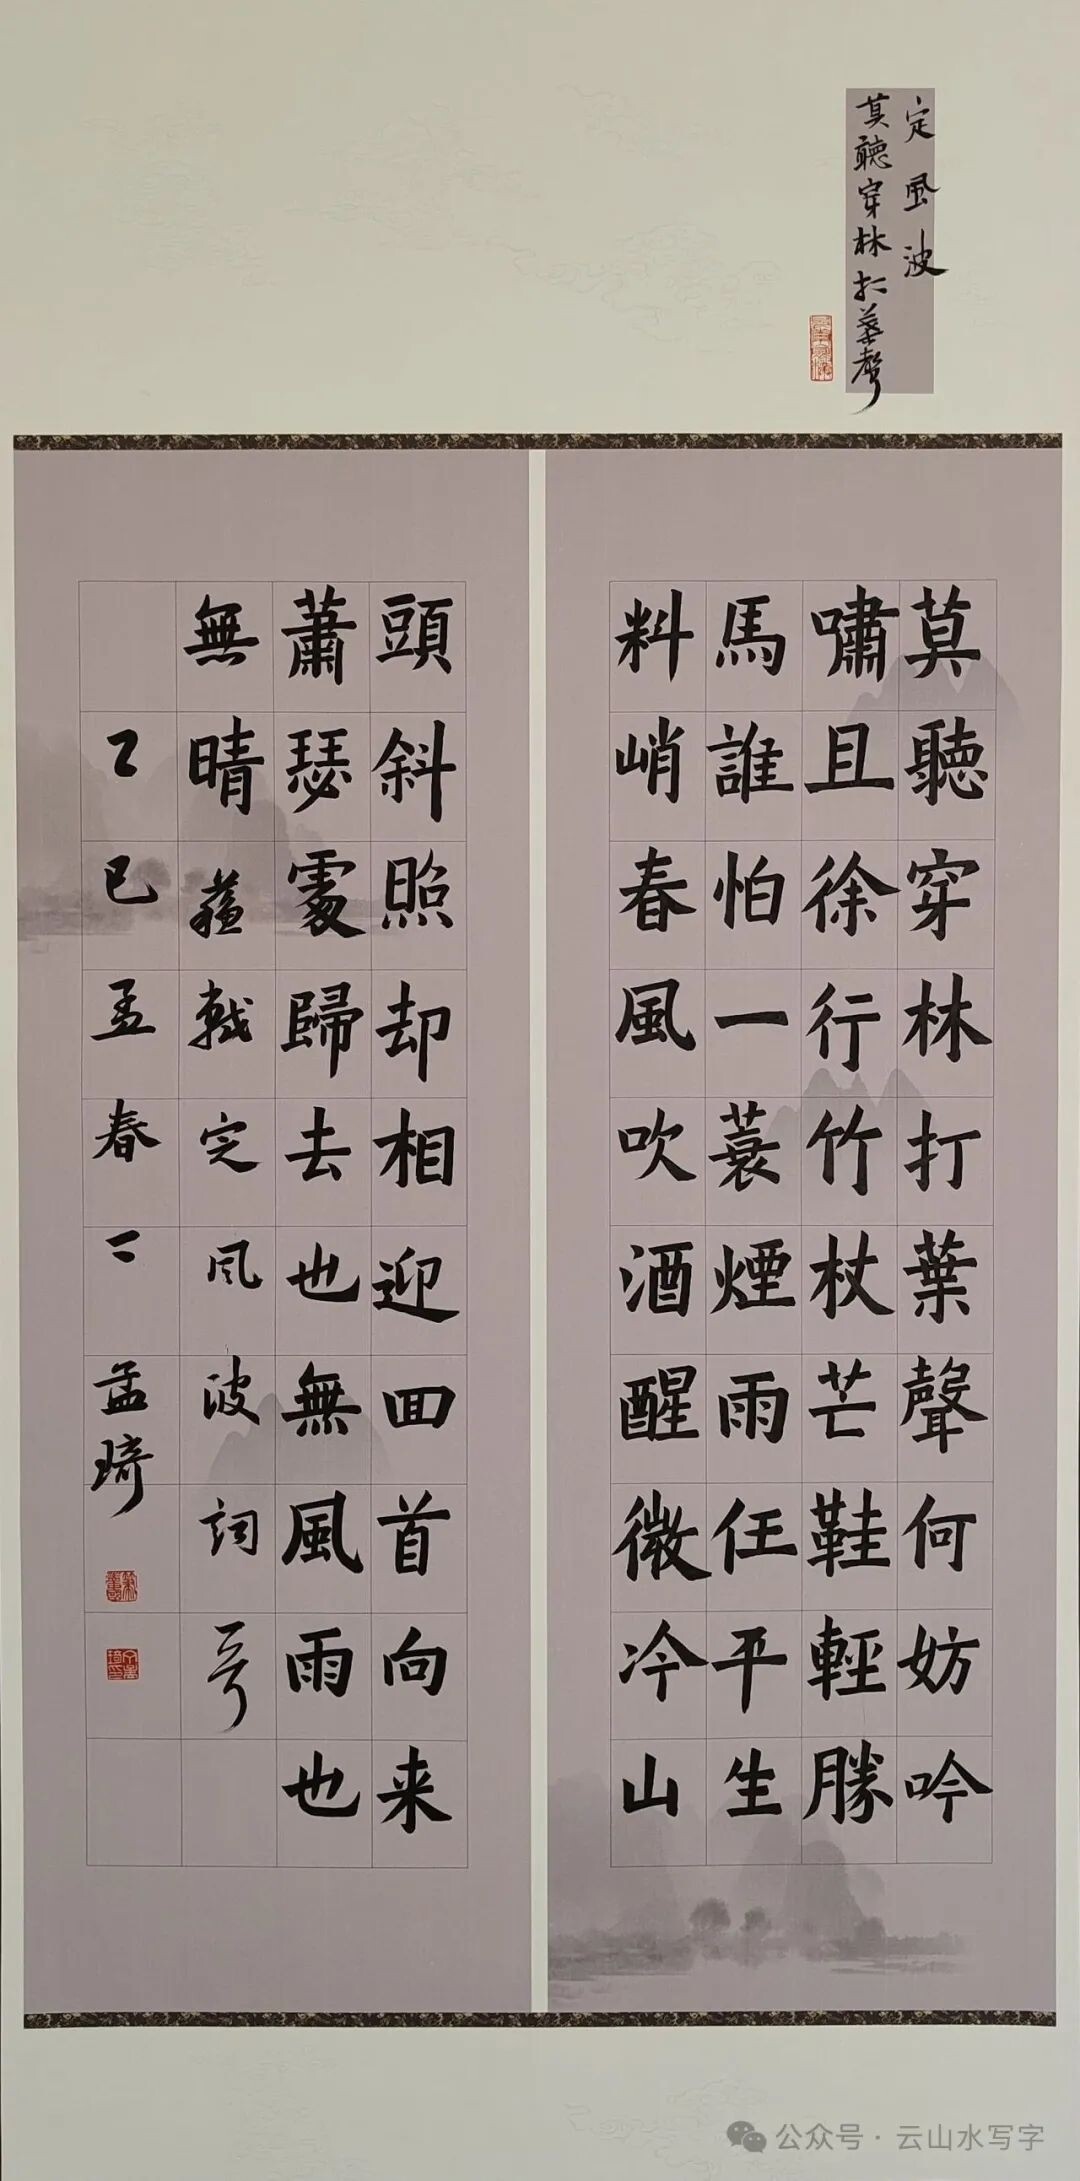 定風波
莫聽穿林打葉聲
莫聽穿林打葉聲何妨吟
嘯且徐行竹杖芒鞋輕勝
馬誰怕一蓑煙雨任平生
料峭春風吹酒醒微冷山
頭斜照却相迎回首向来
蕭瑟處歸去也無風雨也
無晴蘓軾定风波詞一首
乙巳孟春孟琦
公众号·云山水写字